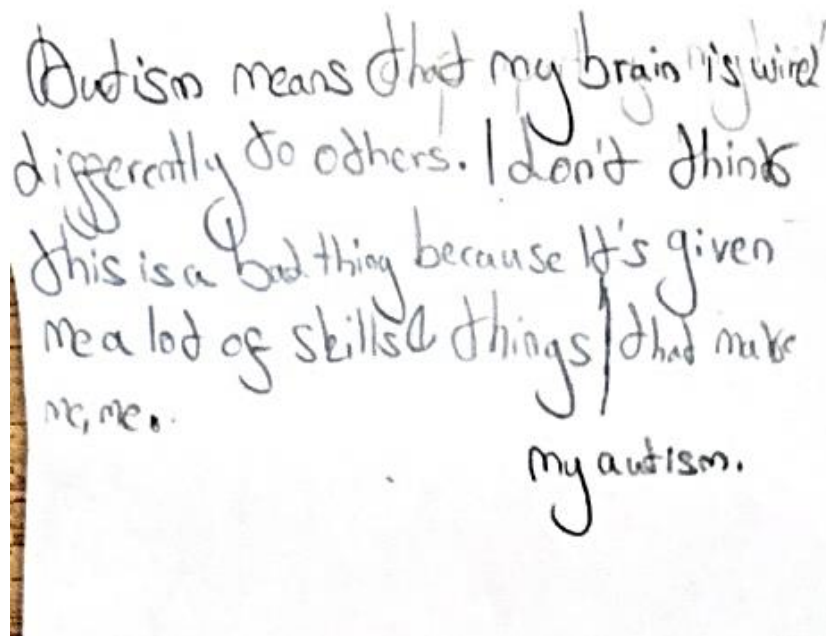 Autism means that my brain is wired
differently to others. I don't think
this is a bad thing because It's given
me a lot of skills & things that make
me, me.
my autism.